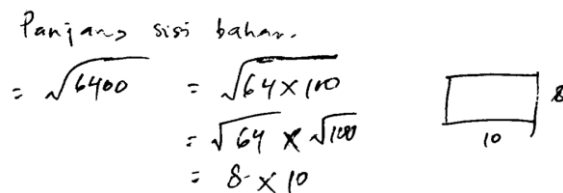 Panjang sisi bahan.
= √6400 = √64 × 100
= √64 × √100
= 8 × 10
8
10